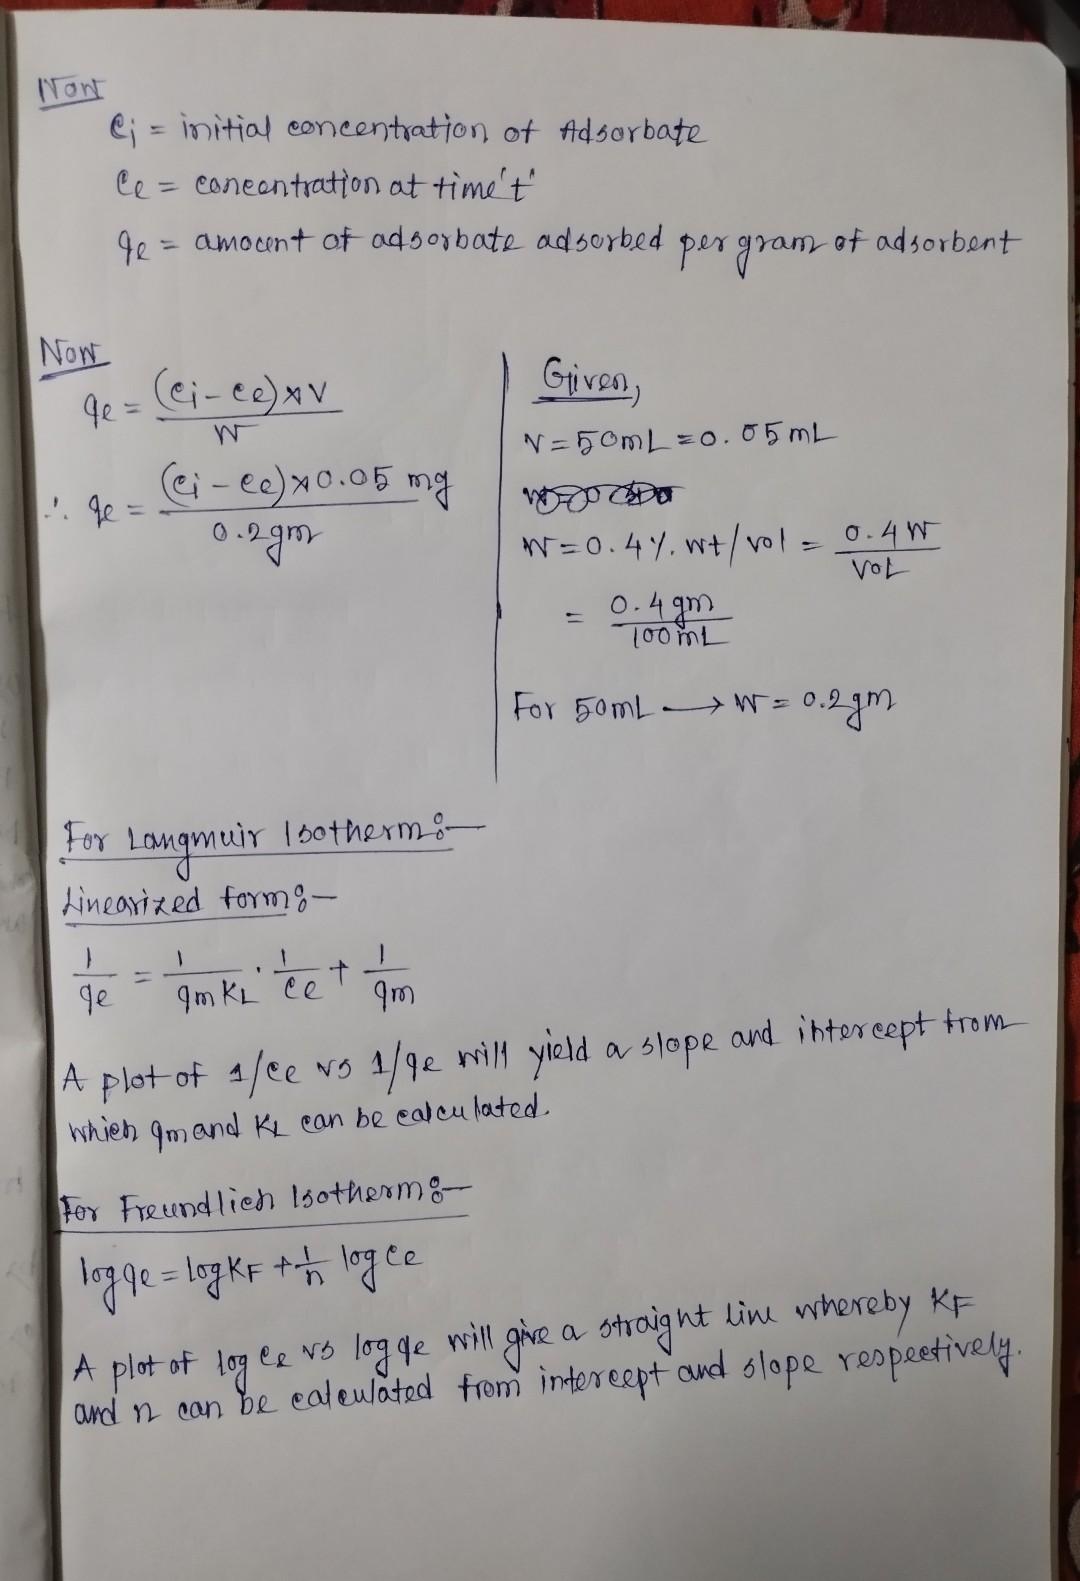 Now
Ci = initial concentration of Adsorbate
Ce = concentration at time 't'
qe = amount of adsorbate adsorbed per gram of adsorbent
Now
qe = (Ci - Ce) x V / W
∴ qe = (Ci - Ce) x 0.05 mg / 0.2gm
Given,
V = 50mL = 0.05mL
W = 0.4 %. wt/vol = 0.4 W / VOL
= 0.4 gm / 100 mL
For 50mL → W = 0.2gm
For Langmuir Isotherm:-
Linearized form:-
1/qe = 1/qm KL . 1/Ce + 1/qm
A plot of 1/Ce vs 1/qe will yield a slope and intercept from
which qm and KL can be calculated.
For Freundlich Isotherm:-
log qe = log KF + 1/n log Ce
A plot of log Ce vs log qe will give a straight line whereby KF
and n can be calculated from intercept and slope respectively.